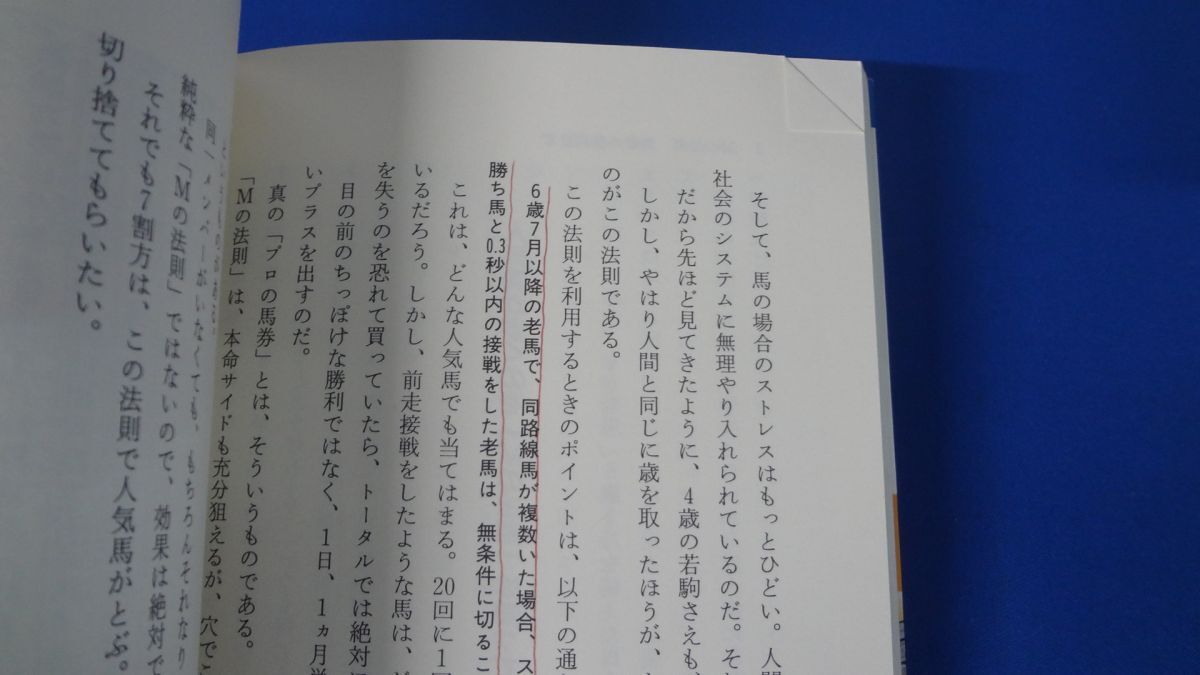 そして、馬の場合のストレスはもっとひどい。人間
社会のシステムに無理やり入れられているのだ。それ
だから先ほど見てきたように、4歳の若駒さえも、
しかし、やはり人間と同じに歳を取ったほうが、
のがこの法則である。
この法則を利用するときのポイントは、以下の通
6歳7月以降の老馬で、同路線馬が複数いた場合、ス
勝ち馬と0.3秒以内の接戦をした老馬は、無条件に切るこ
これは、どんな人気馬でも当てはまる。20回に1
いるだろう。しかし、前走接戦をしたような馬は、
を失うのを恐れて買っていたら、トータルでは絶対に
目の前のちっぽけな勝利ではなく、1日、1ヵ月単
いプラスを出すのだ。
真の「プロの馬券」とは、そういうものである。
「Mの法則」は、本命サイドも充分狙えるが、穴でこ
同一メンバーがいなくても、もちろんそれなり
純粋な「Mの法則」ではないので、効果は絶対で
それでも7割方は、この法則で人気馬がとぶ。
切り捨ててもらいたい。